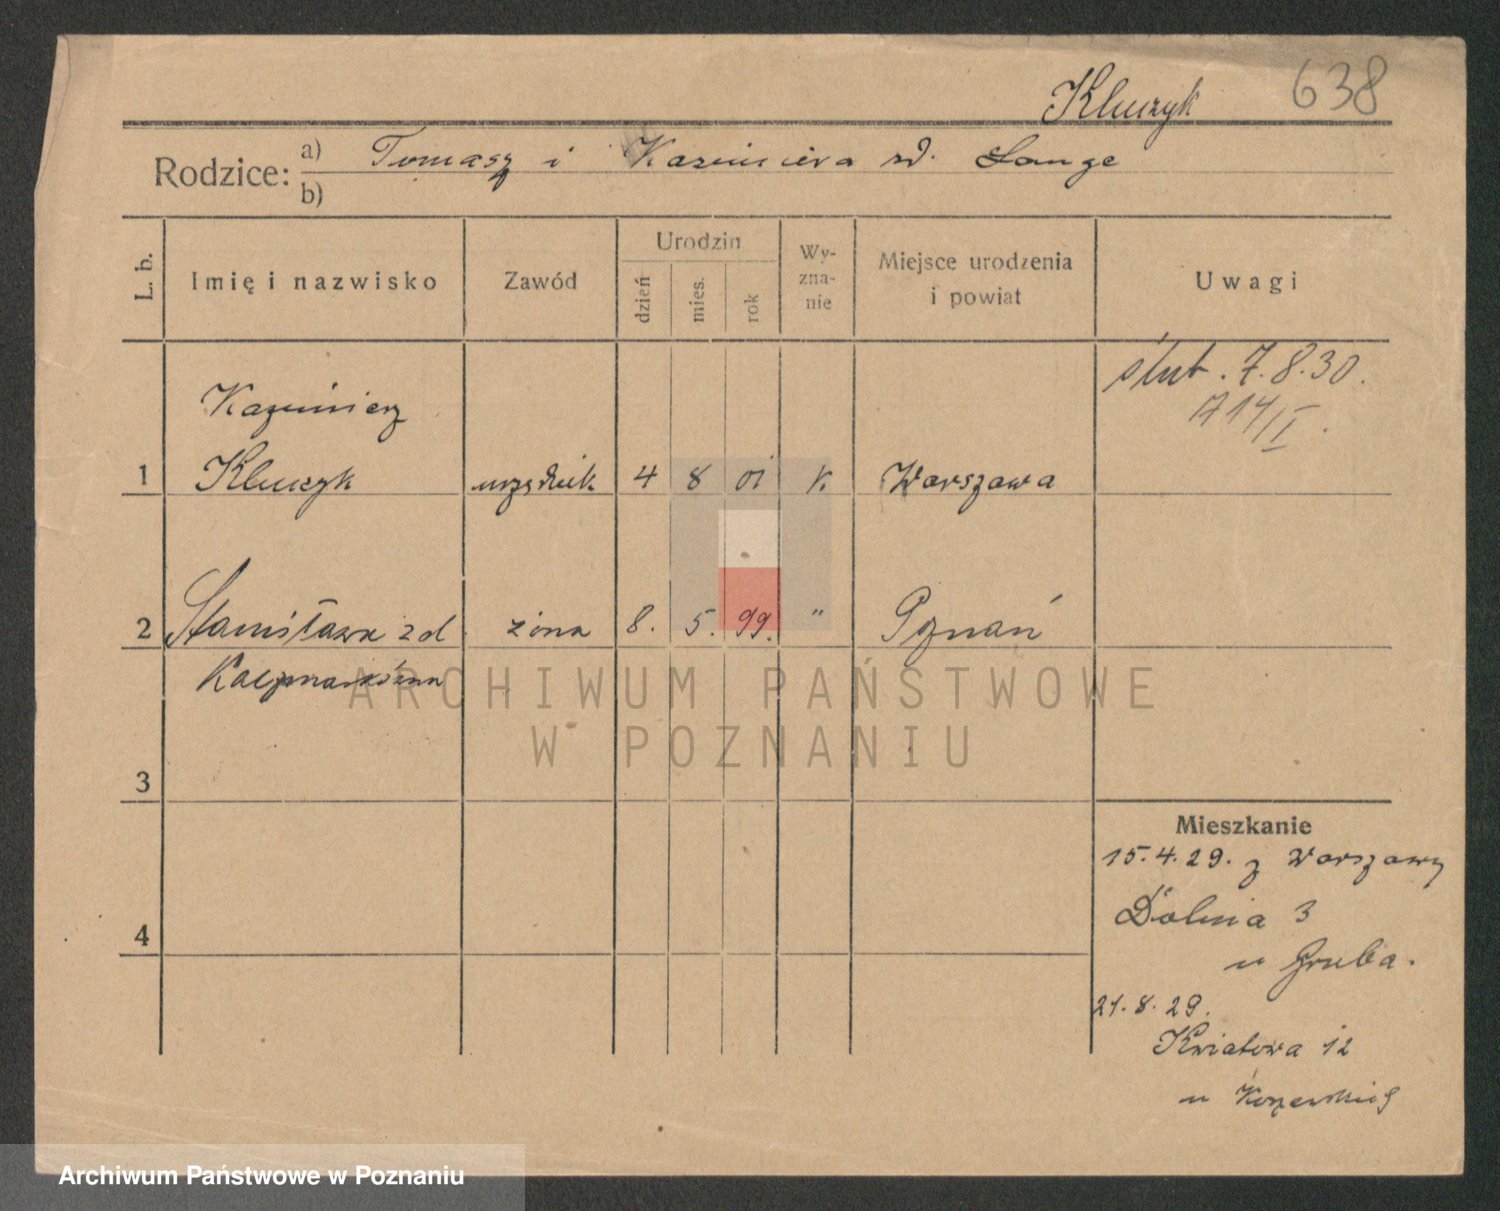 Kluczyk 638
Rodzice: a) Tomasz i Kazimiera zd. Lange
b)
L. b. Imię i nazwisko Zawód Urodzin dzień mies. rok Wy-zna-nie Miejsce urodzenia i powiat Uwagi
ślub. 7.8.30.
714/I.
Kazimierz
1 Kluczyk urzędnik 4 8 01 k. Warszawa
2 Stanisława zd żona 8. 5. 99. " Poznań
Kaczmarkówna
ARCHIWUM PAŃSTWOWE
W POZNANIU
3
Mieszkanie
15.4.29. z Warszawy
Dolina 3
4
u Gruba.
21.8.29.
Kwiatowa 12
u
Archiwum Państwowe w Poznaniu